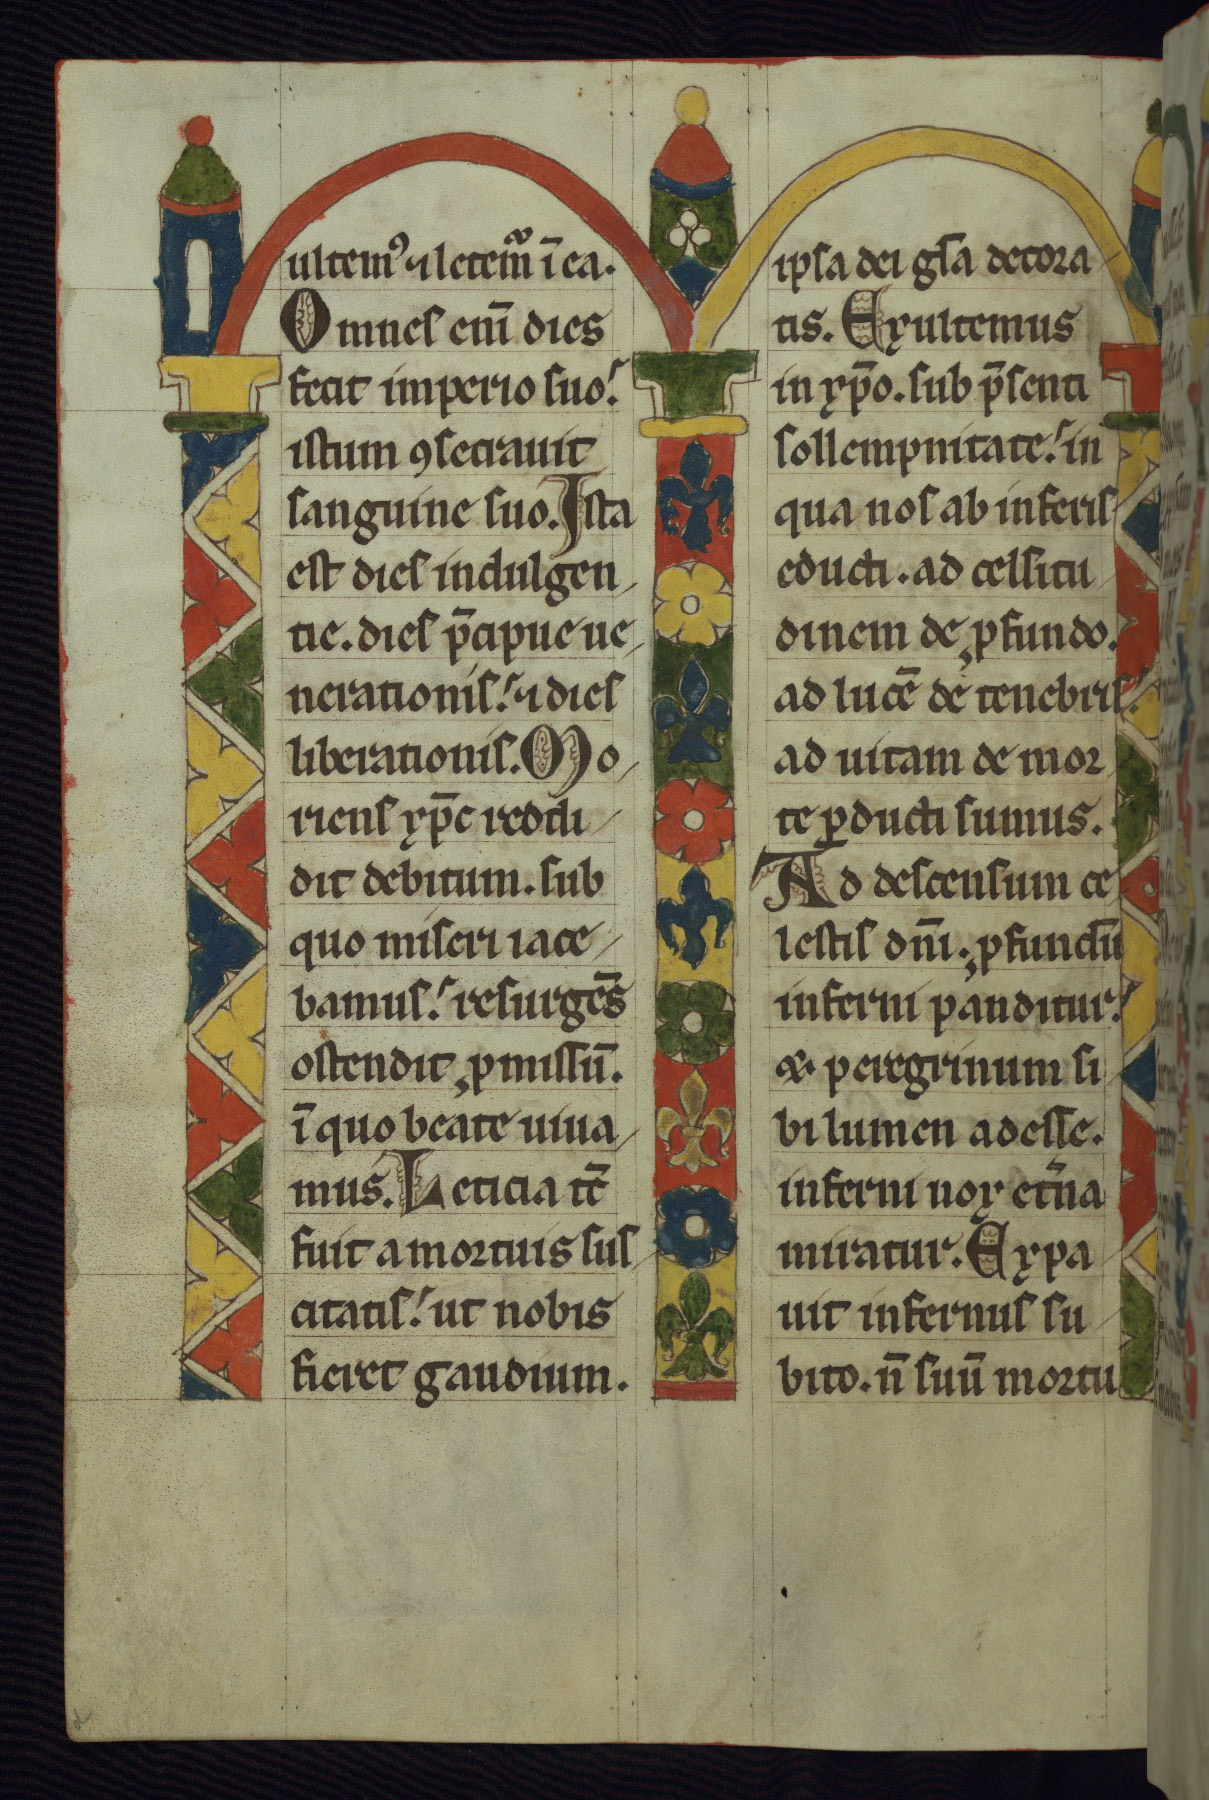 ultem⁹ ⁊ letem̃ ĩ ea.
Omnes enĩ dies
fecit imperio suo.
istum ꝯsecrauit
sanguine suo. Ista
est dies indulgen
tie. dies p̃cipue ue
nerationis. ⁊ dies
liberationis. Mo
riens xp̃c reddi
dit debitum. sub
quo miseri iace
bamus. resurgẽs
ostendit ꝓmissũ.
ĩ quo beate uiua
mus. Leticia tẽ
fuit a mortuis sus
citatis. ut nobis
fieret gaudium.
ipsa dei gl̃a decora
tis. Exultemus
in xp̃o. sub p̃senti
sollempnitate. in
qua nos ab inferis
educti. ad celsitu
dinem de ꝓfundo.
ad lucẽ de tenebris.
ad uitam de mor
te ꝑducti sumus.
Ad descensum ce
lestis dñi. ꝓfundũ
inferni panditur.
& peregrinum si
bi lumen adesse.
inferni nox et̃na
miratur. Expa
uit infernus su
bito. ñ suũ mortu